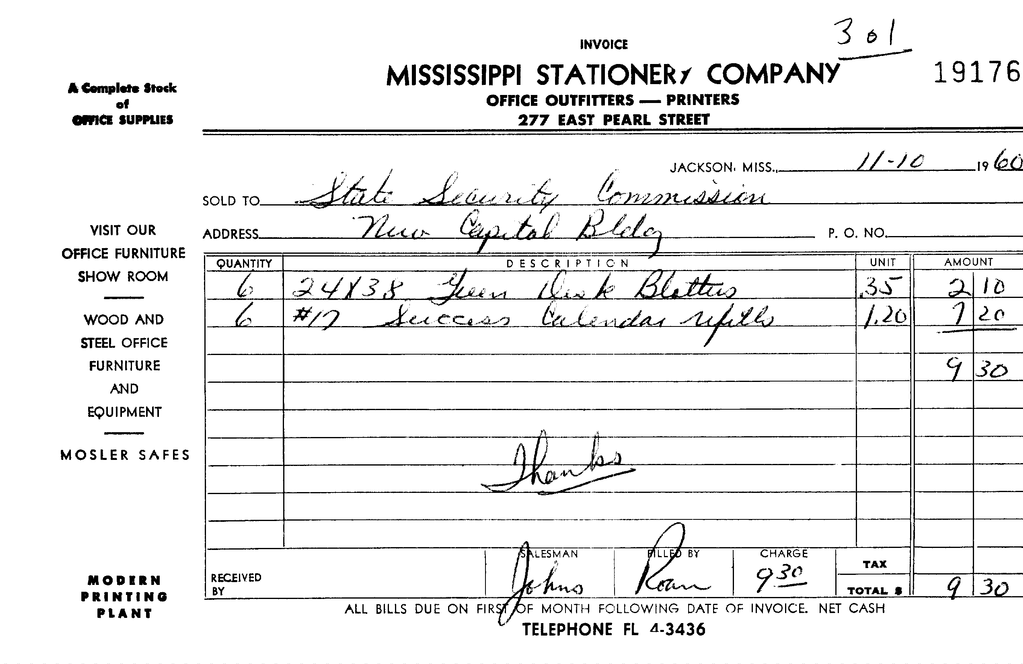 301
INVOICE
MISSISSIPPI STATIONERY COMPANY
19176
OFFICE OUTFITTERS — PRINTERS
277 EAST PEARL STREET
A Complete Stock
of
OFFICE SUPPLIES
JACKSON, MISS., 11-10 1960
SOLD TO State Security Commission
ADDRESS New Capitol Bldg P. O. NO.
VISIT OUR
OFFICE FURNITURE
SHOW ROOM
WOOD AND
STEEL OFFICE
FURNITURE
AND
EQUIPMENT
MOSLER SAFES
QUANTITY DESCRIPTION UNIT AMOUNT
6 24X38 Green Desk Blotters .35 2 10
6 #17 Success Calendar refills 1.20 7 20
9 30
Thanks
MODERN
PRINTING
PLANT
RECEIVED
BY
SALESMAN
Johns
FILLED BY
Roan
CHARGE
9 30
TAX
TOTAL $ 9 30
ALL BILLS DUE ON FIRST OF MONTH FOLLOWING DATE OF INVOICE. NET CASH
TELEPHONE FL 4-3436